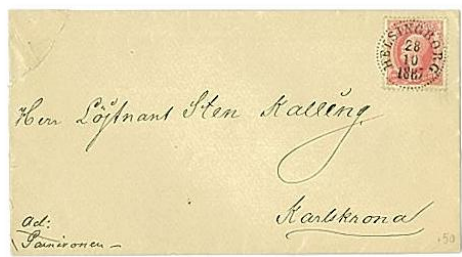 HELSINGBORG
28
10
1887
Herr Löjtnant Sten Kalling
Karlskrona
ad: